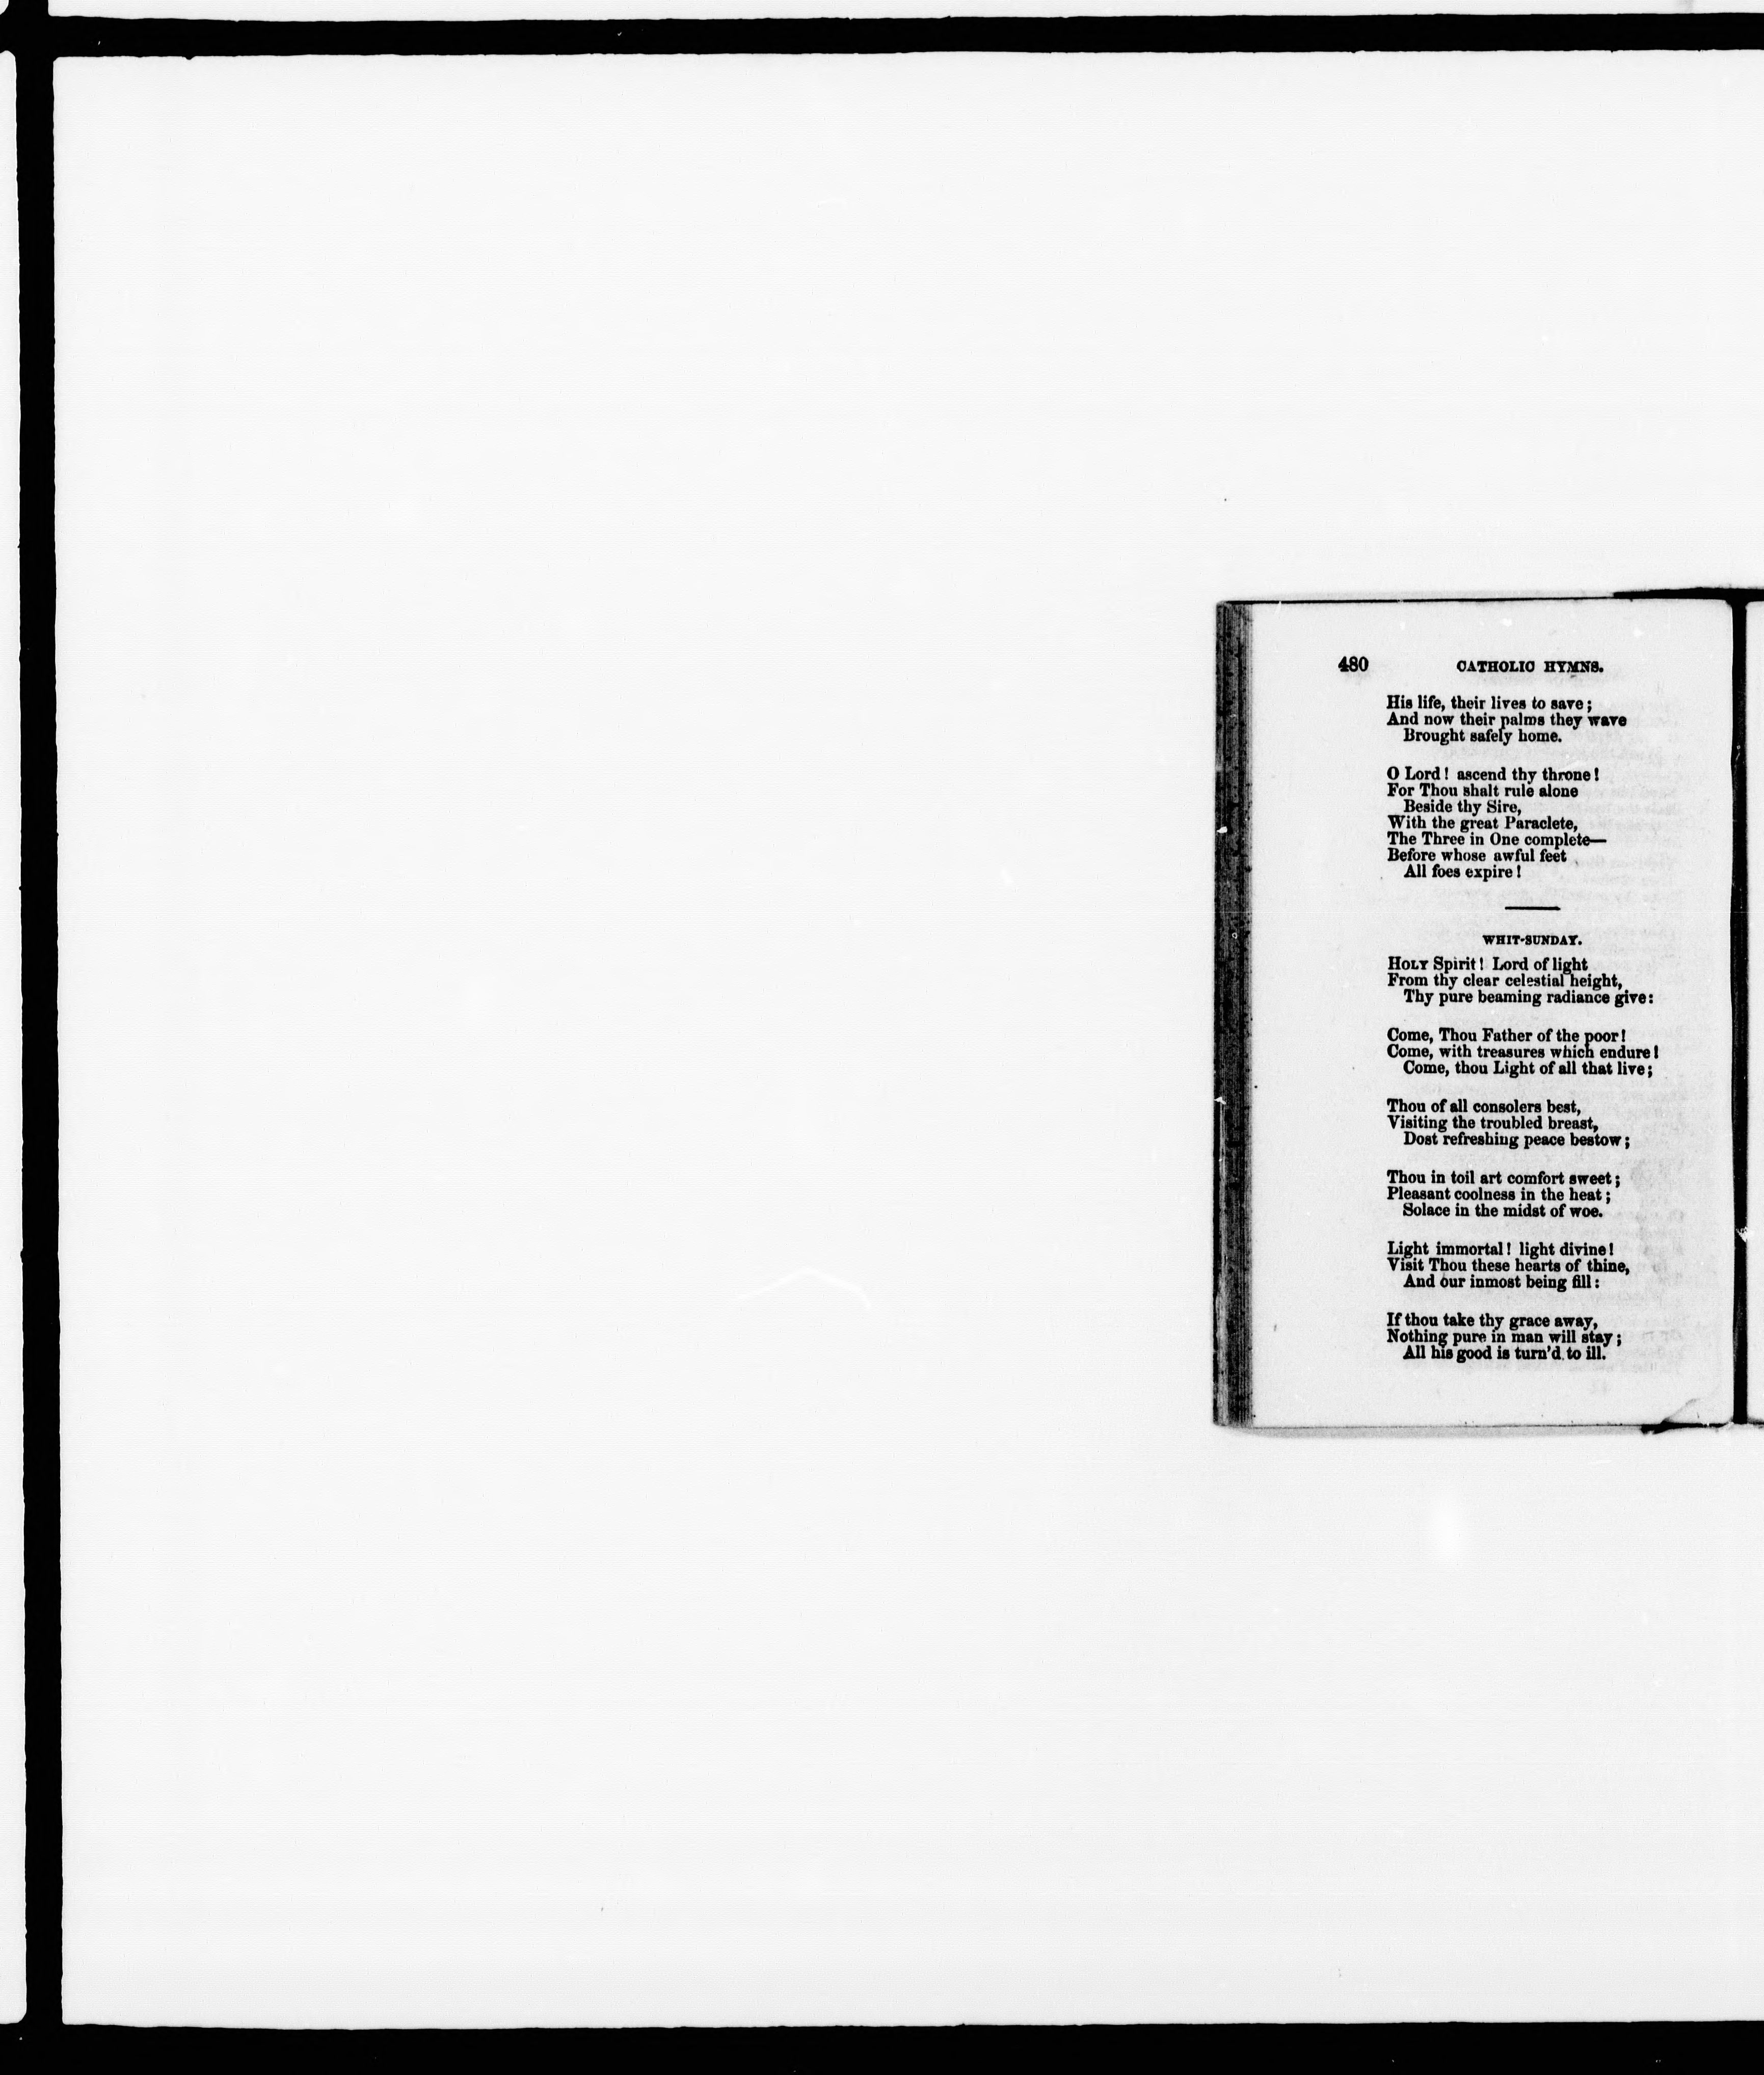 480 CATHOLIC HYMNS.
His life, their lives to save;
And now their palms they wave
Brought safely home.
O Lord! ascend thy throne!
For Thou shalt rule alone
Beside thy Sire,
With the great Paraclete,
The Three in One complete—
Before whose awful feet
All foes expire!
WHIT-SUNDAY.
HOLY Spirit! Lord of light
From thy clear celestial height,
Thy pure beaming radiance give:
Come, Thou Father of the poor!
Come, with treasures which endure!
Come, thou Light of all that live;
Thou of all consolers best,
Visiting the troubled breast,
Dost refreshing peace bestow;
Thou in toil art comfort sweet;
Pleasant coolness in the heat;
Solace in the midst of woe.
Light immortal! light divine!
Visit Thou these hearts of thine,
And our inmost being fill:
If thou take thy grace away,
Nothing pure in man will stay;
All his good is turn'd to ill.